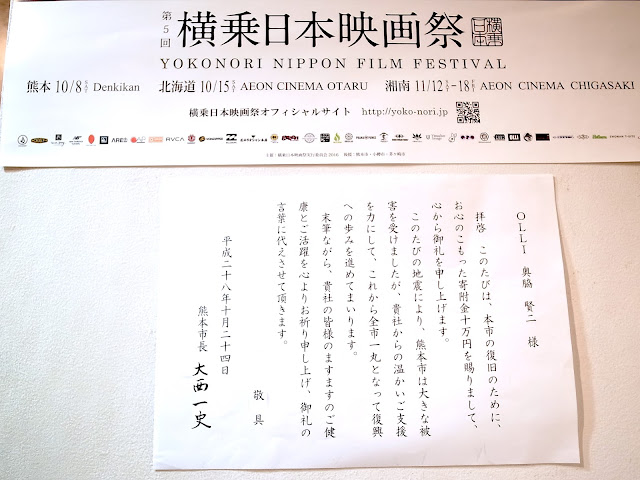 第5回
横乗日本映画祭
横乗日本
YOKONORI NIPPON FILM FESTIVAL
熊本 10/8 Denkikan 北海道 10/15 AEON CINEMA OTARU 湘南 11/12-18 AEON CINEMA CHIGASAKI
横乗日本映画祭オフィシャルサイト http://yoko-nori.jp
ARES
RVCA
OLLI 奥脇 賢二 様
拝啓 このたびは、本市の復旧のために、
お心のこもった寄附金十万円を賜りまして、
心から御礼を申し上げます。
このたびの地震により、熊本市は大きな被
害を受けましたが、貴社からの温かいご支援
を力にして、これから全市一丸となって復興
への歩みを進めてまいります。
末筆ながら、貴社の皆様のますますのご健
康とご活躍を心よりお祈り申し上げ、御礼の
言葉に代えさせて頂きます。
敬具
平成二十八年十月二十四日
熊本市長 大西一史